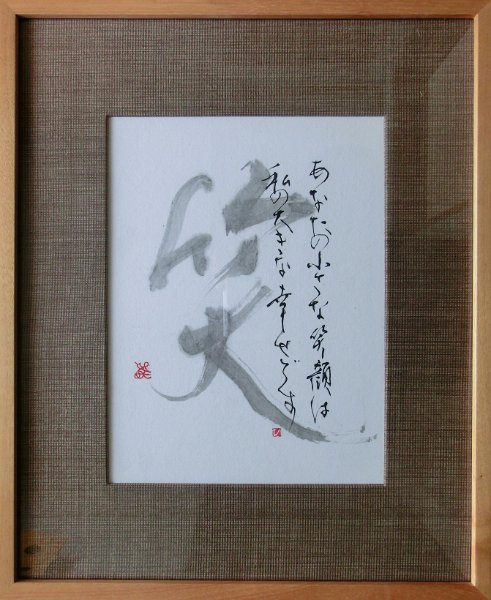 笑
あなたの小さな笑顔は
私の大きな幸せです